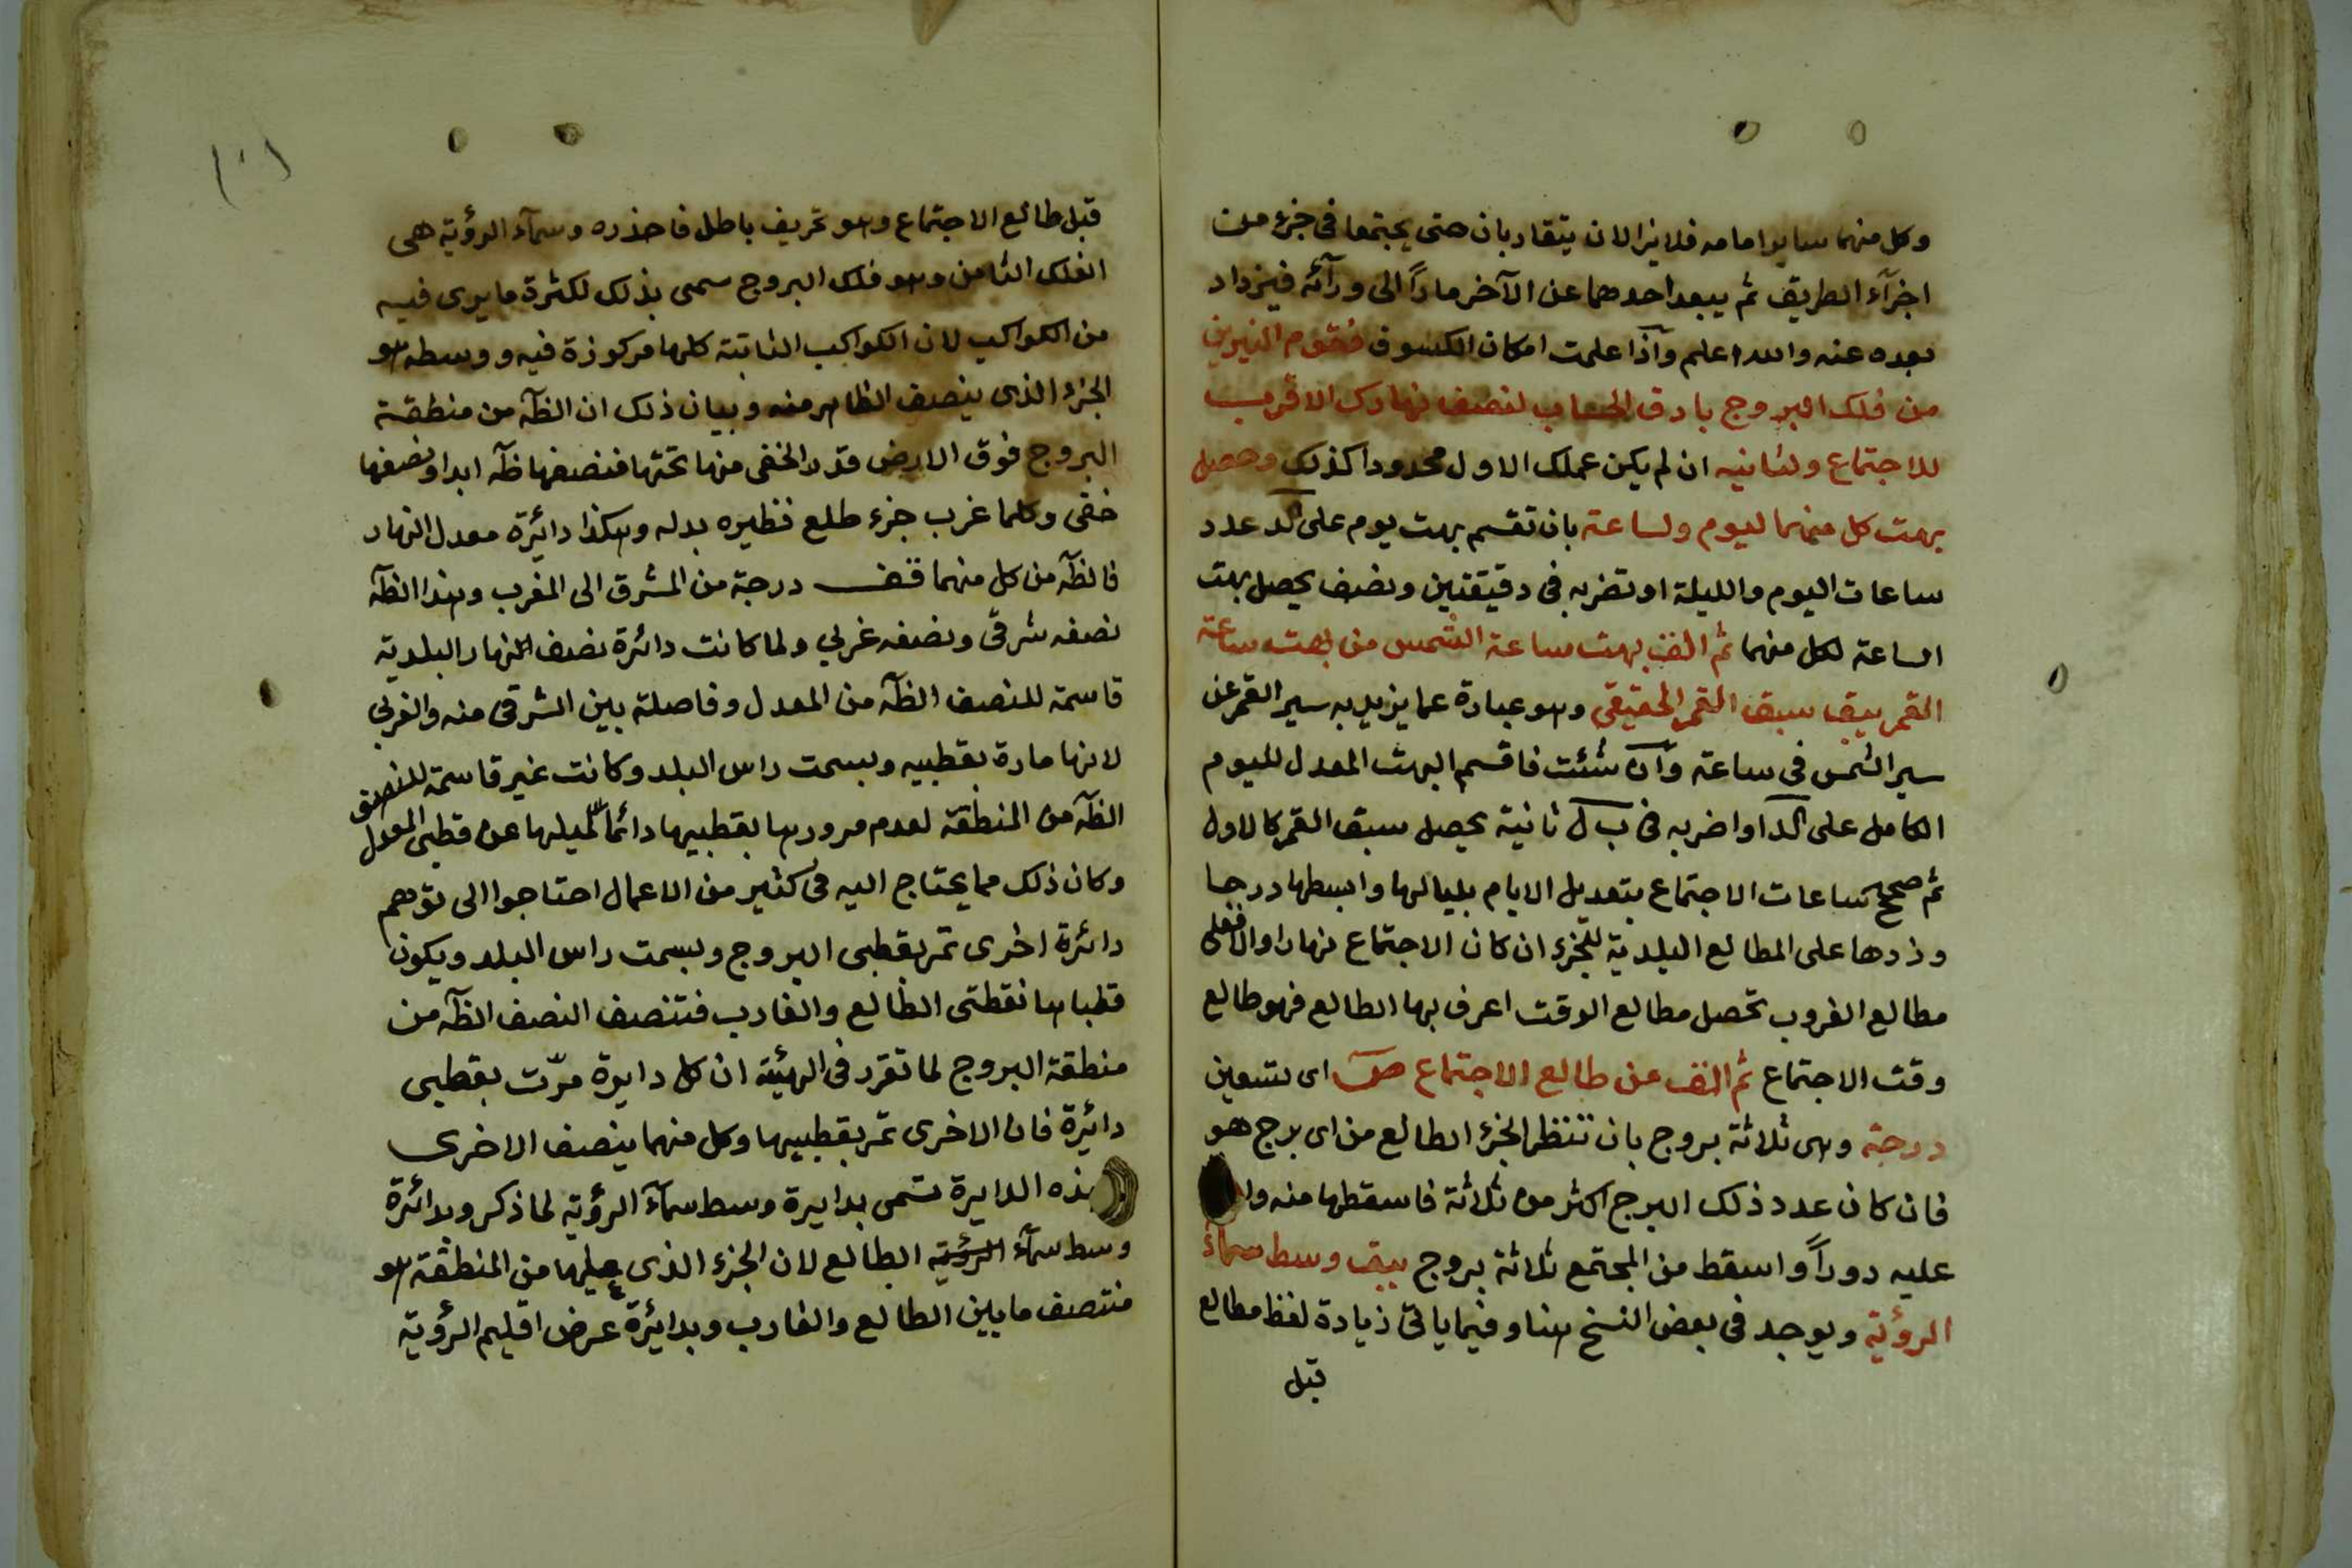 وكل منهما ساير امامه فلا يزالان يتقاربان حتى يجتمعا فى جزء من
اجزآء الطريق ثم يبعد احدهما عن الآخر ماراً الى ورآئه فيزداد
بعده عنه والله اعلم وآذا علمت امكان الكسوف فقوم النيرين
من فلك البروج بادق الحساب لنصف نهارك الاقرب
للاجتماع ولثانيه ان لم يكن عملك الاول محدودا كذلك وحصل
بهت كل منهما ليوم ولساعة بان تقسم بهت يوم على كد عدد
ساعات اليوم والليلة او تضربه فى دقيقتين ونصف يحصل بهت
الساعة لكل منهما ثم الق بهت ساعة الشمس من بهت ساعة
القمر يبق سبق القمر الحقيقي وهو عبارة عما يزيد به سير القمر عن
سير الشمس فى ساعة وآن شئت فاقسم البهت المعدل لليوم
الكامل على كد او اضربه فى ب ل ثانية يحصل سبق القمر كالاول
ثم صحح ساعات الاجتماع بتعديل الايام بلياليها وابسطها درجا
وزدها على المطالع البلدية للجزء ان كان الاجتماع نهارا والا فعلى
مطالع الغروب تحصل مطالع الوقت اعرف بها الطالع فهو طالع
وقت الاجتماع ثم الق من طالع الاجتماع ص اى تسعين
درجة وهى ثلاثة بروج بان تنظر الجزء الطالع من اى برج هو
فان كان عدد ذلك البرج اكثر من ثلاثة فاسقطها منه وا
عليه دوراً واسقط من المجتمع ثلاثة بروج يبق وسط سماء
الرؤية ويوجد فى بعض النسخ هنا وفيما ياتى زيادة لفظ مطالع
قبل
١٠١
قبل طالع الاجتماع وهو تحريف باطل فاحذره وسمآء الرؤية هى
الفلك الثامن وهو فلك البروج سمى بذلك لكثرة ما يرى فيه
من الكواكب لان الكواكب الثابتة كلها مركوزة فيه ووسطه هو
الجزء الذى ينصف الظاهر منه وبيان ذلك ان الظآ من منطقة
البروج فوق الارض قدر الخفى منها تحتها فنصفها ظآ ابدا ونصفها
خفى وكلما غرب جزء طلع نظيره بدله وهكذا دائرة معدل النهار
فالظآ من كل منهما قف درجة من المشرق الى المغرب وهذا الظآ
نصفه شرقى ونصفه غربي ولما كانت دائرة نصف النهار البلدية
قاسمة للنصف الظآ من المعدل وفاصلة بين الشرقى منه والغربي
لانها مارة بقطبيه وبسمت راس البلد وكانت غير قاسمة للنصف
الظآ من المنطقة لعدم مرورها بقطبيها دائما لميلها عن قطبى المعدل
وكان ذلك مما يحتاج اليه فى كثير من الاعمال احتاجوا الى توهم
دائرة اخرى تمر بقطبى البروج وبسمت راس البلد ويكون
قطباها نقطتى الطالع والغارب فتنصف النصف الظآ من
منطقة البروج لما تقرر فى الهيئة ان كل دايرة مرّت بقطبى
دائرة فان الاخرى تمر بقطبيها وكل منهما ينصف الاخرى
هذه الدايرة تسمى بدايرة وسط سمآء الرؤية لما ذكر وبدائرة
وسط سمآء الطالع لان الجزء الذى عليها من المنطقة هو
منتصف ما بين الطالع والغارب وبدائرة عرض اقليم الرؤية